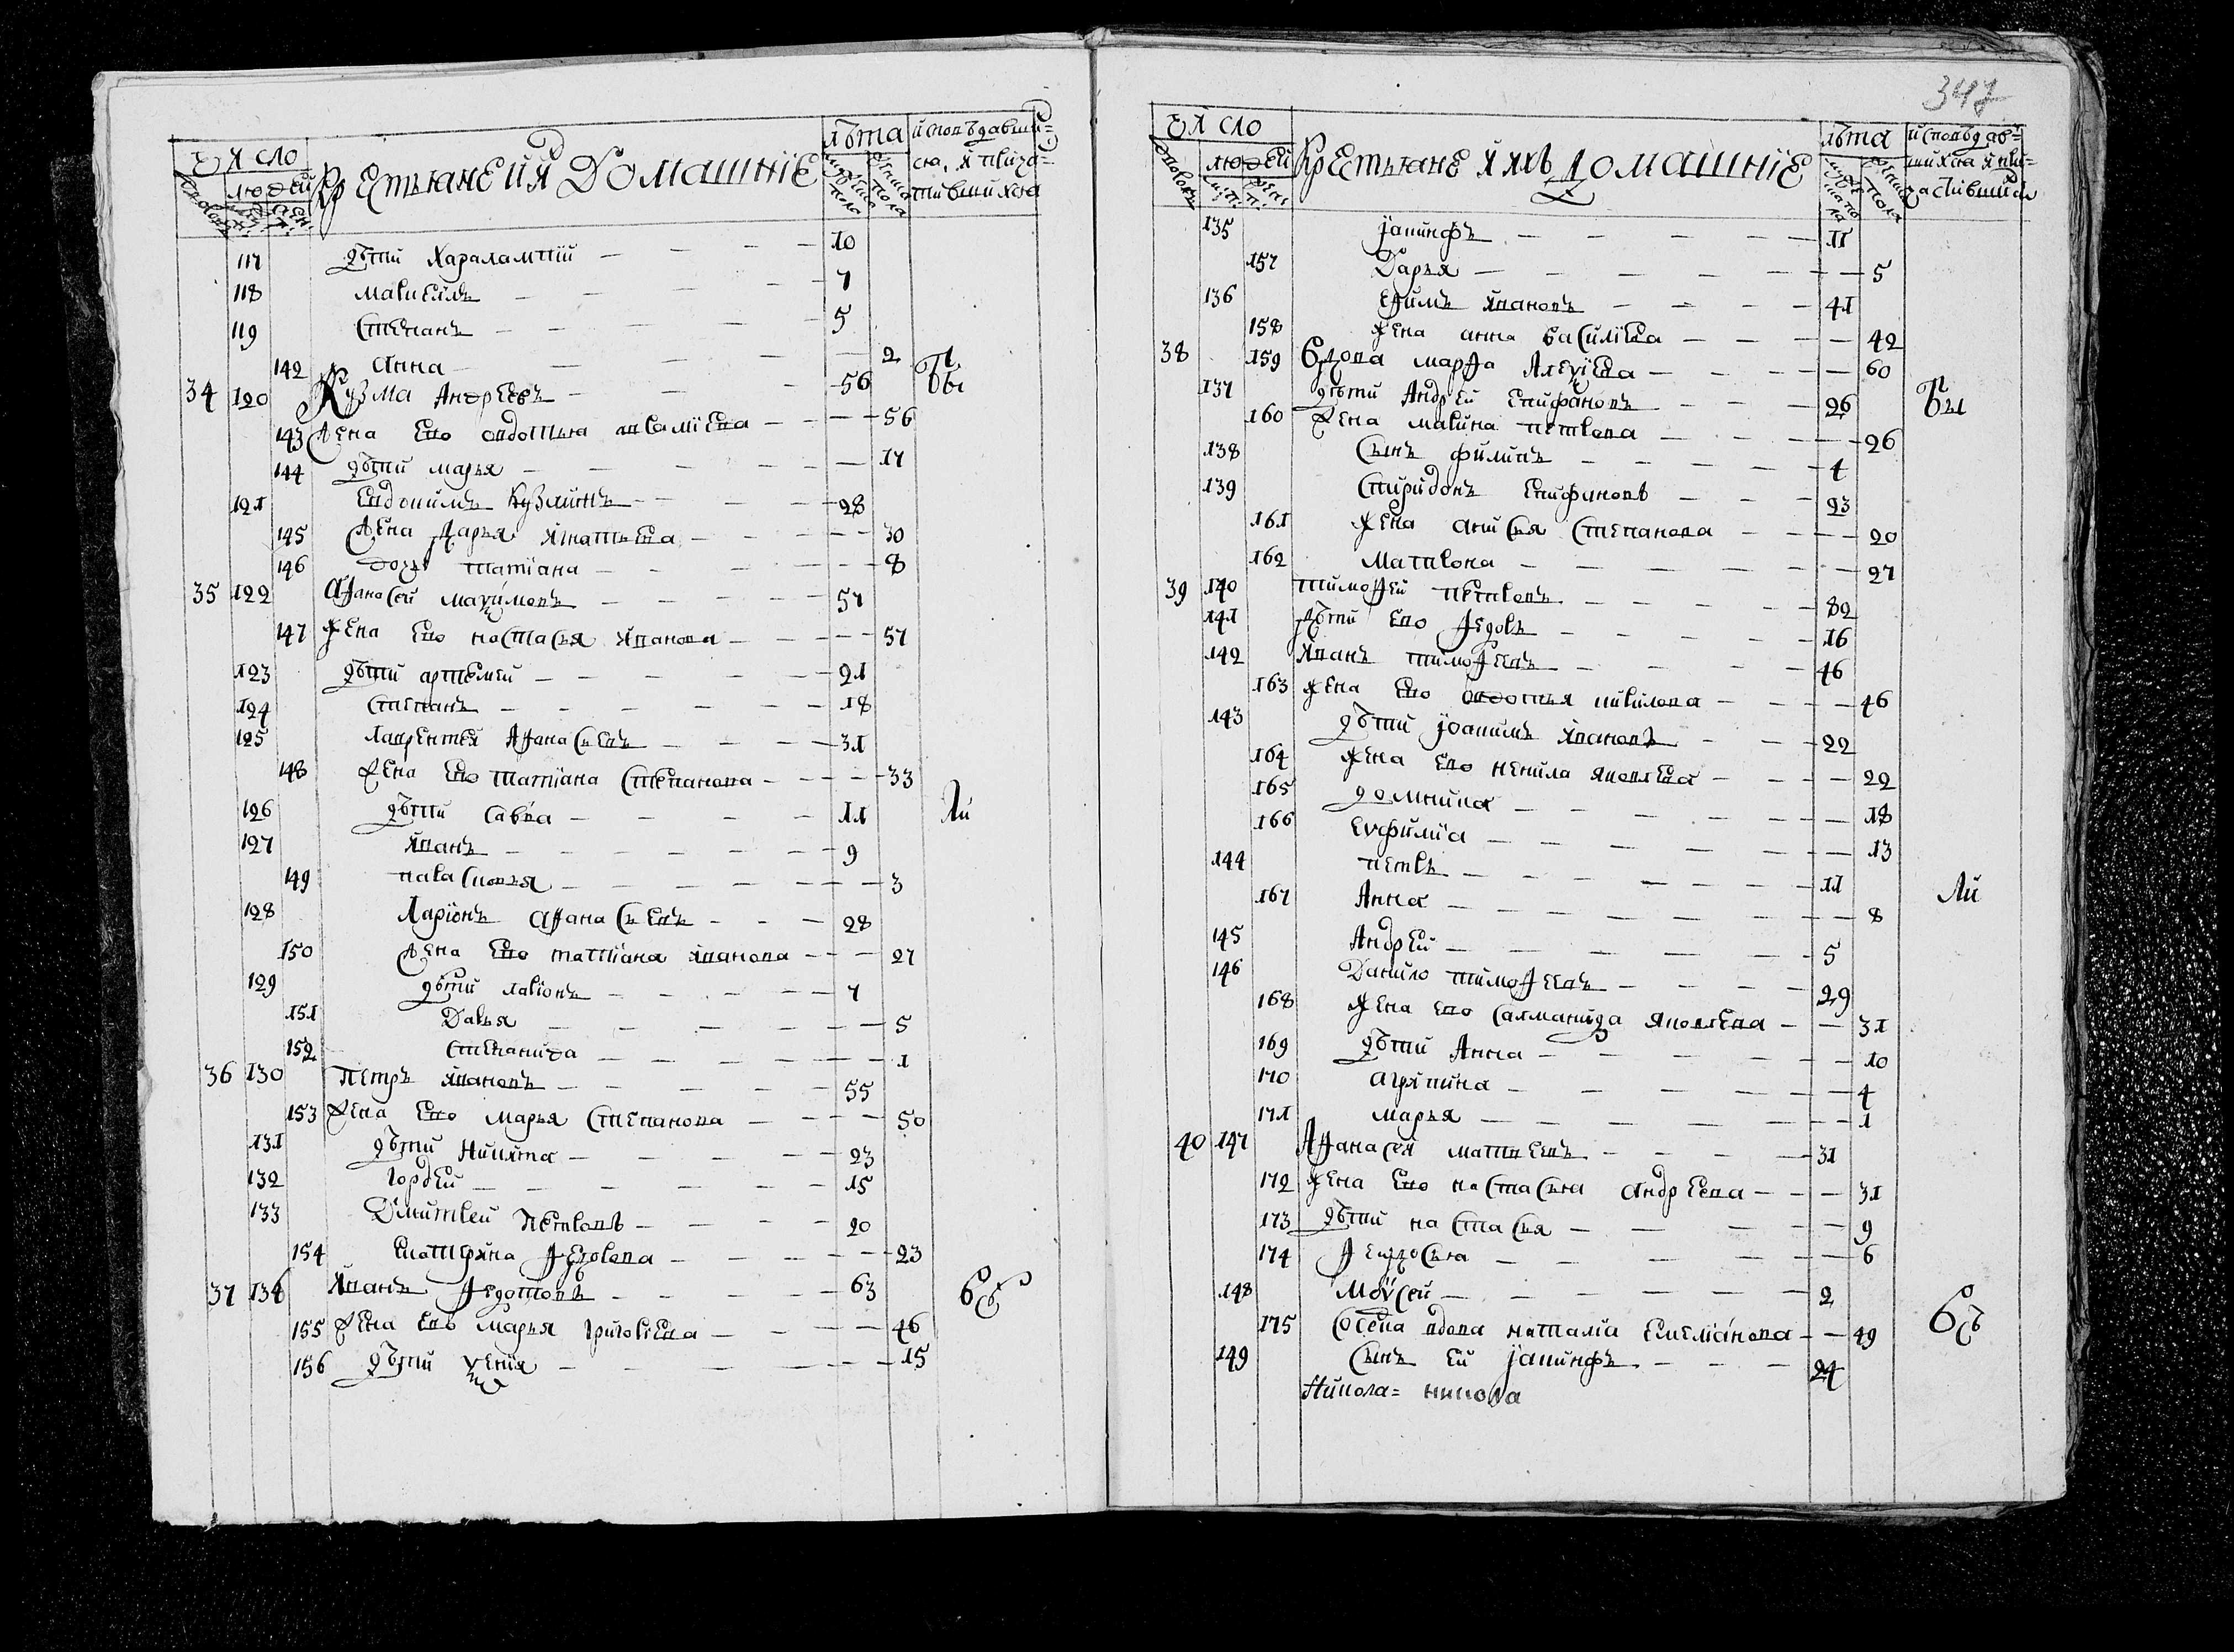 Число
людей
Крестьяне и их домашніе
лѣта
исповѣдавши=
ся, и прича=
тившихся
117 дѣти Харалампій — 10
118 Матѳей — 7
119 Степанъ — 5
142 Анна — 2
34 120 Кузма Андреевъ — 56 Бы
143 Жена его Овдотья — 56
144 дѣти Марья — 17
121 Евдокимъ Кузминъ — 28
145 Жена Дарья Игнатьева — 30
146 дочь Татіана — 8
35 122 Афанасей Маѯимовъ — 57
147 Жена его Настасья Иванова — 57
123 дѣти Артемей — 21
124 Степанъ — 18
125 Лаврентей Афанасьевъ — 31
148 Жена его Татіана Степанова — 33
126 дѣти Савва — 11 Ли
127 Иванъ — 9
149 Парасковья — 3
128 Ларіонъ Афанасьевъ — 28
150 Жена его Татіана Иванова — 27
129 дѣти Ларіонъ — 7
151 Дарья — 5
152 Степанида — 1
36 130 Петръ Ивановъ — 55
153 Жена его Марья Степанова — 50
131 дѣти Никита — 23
132 Гордей — 15
133 Дмитрей Петровъ — 20
154 Екатерина Федорова — 23
37 134 Иванъ Федотовъ — 63
155 Жена его Марья Григорьева — 46
156 дѣти Ѯенія — 15
347
Число
людей
Крестьяне и ихъ домашніе
лѣта
исповѣдав=
шихся и при=
частившихся
135 Іакинфъ — 11
157 Дарья — 5
136 Ефимъ Ивановъ — 41
158 Жена Анна Василіева — 42
38 159 Вдова Марфа Алеѯіева — 60
137 дѣти Андрей Епифановъ — 26 Бы
160 Жена Марина Петрова — 26
138 Сынъ Филипъ — 4
139 Спиридонъ Епифановъ — 23
161 Жена Анисья Степанова — 20
162 Матрона — 27
39 140 Тимофей Петровъ — 82
141 дѣти его Федоръ — 16
142 Иванъ Тимофеевъ — 46
163 Жена его Овдотья Кирилова — 46
143 дѣти Іоакимъ Ивановъ — 22
164 Жена его Ненила Яковлева — 22
165 Домника — 18
166 Евфимія — 13
144 Петръ — 11
167 Анна — 8 Ли
145 Андрей — 5
146 Данило Тимофеевъ — 29
168 Жена его Саламанида Яковлева — 31
169 дѣти Анна — 10
170 Агрипина — 4
171 Марья — 1
40 147 Афанасей Матвеевъ — 31
172 Жена его Настасья Андреева — 31
173 дѣти Настасья — 9
174 Феодосья — 6
148 Моѵсей — 2
175 вдова Наталіа Емеліанова — 49
149 Сынъ ей Іакинфъ — 24
Никола= Никола